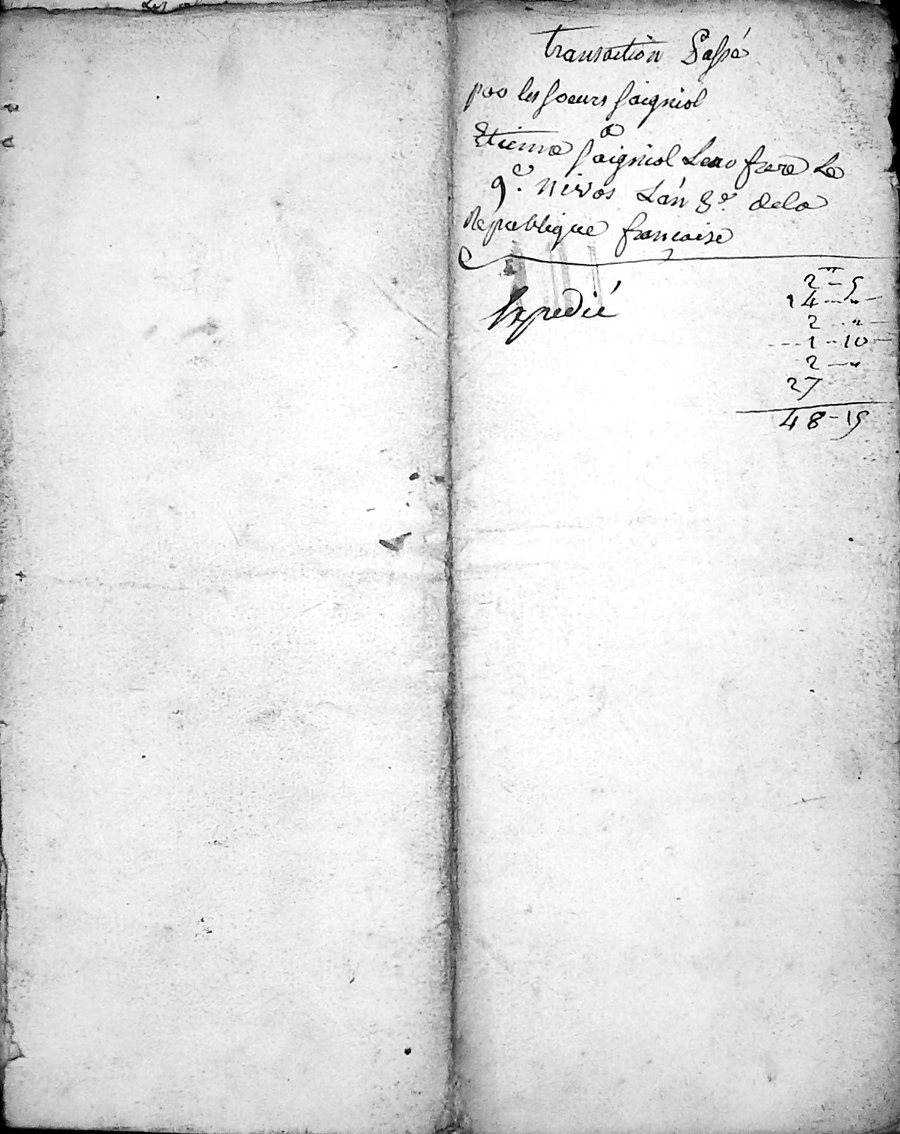 transaction Passé
par les soeurs saigniol
a
Etienne saigniol Leur frere Le
9.e nivos L'an 8.e dela
Republique francaise
Expedié
2 - 5
14 - "
2 - "
1 - 10
2 - "
27
48 - 15